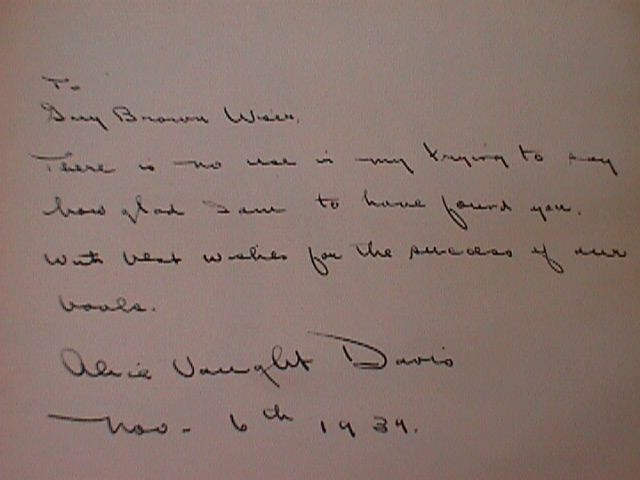 To
Guy Brown Wiser,
There is no use in my trying to say
how glad I am to have found you.
With best wishes for the success of our
books.
Alice Vaught Davis
Nov - 6th 1939.